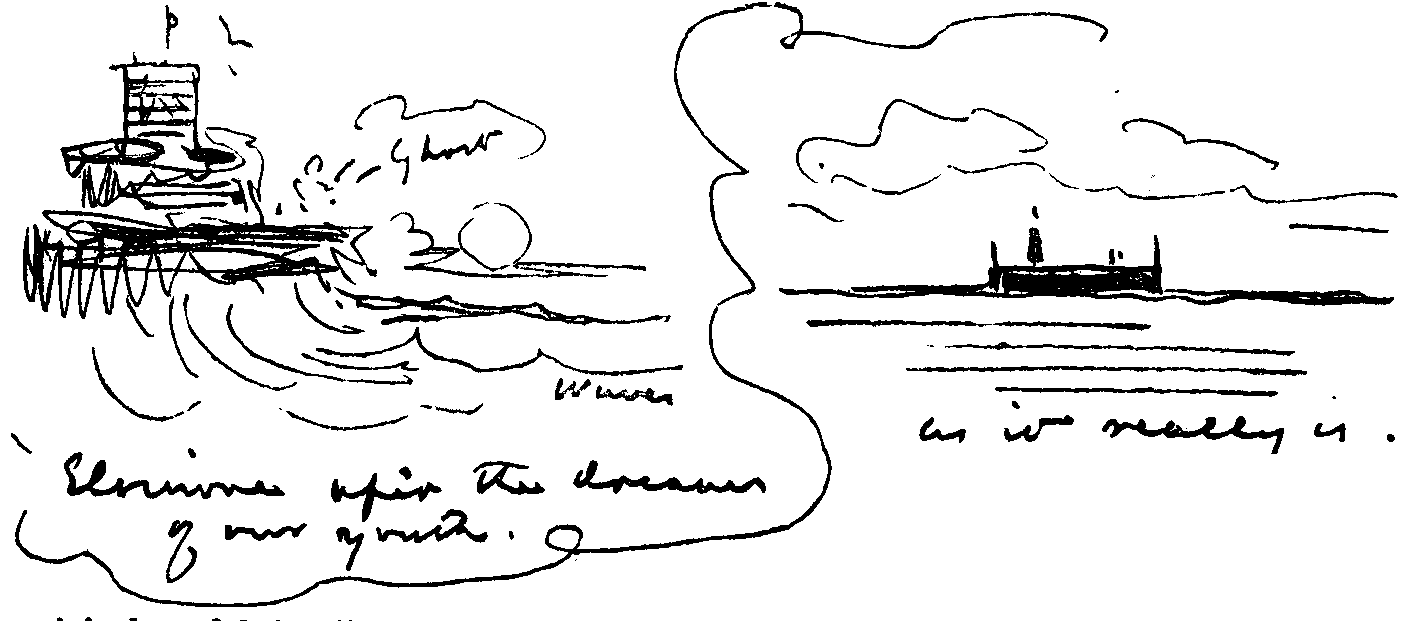 Ghost
Waves
Elsinore upon the dreams
of our youth.
as it really is.